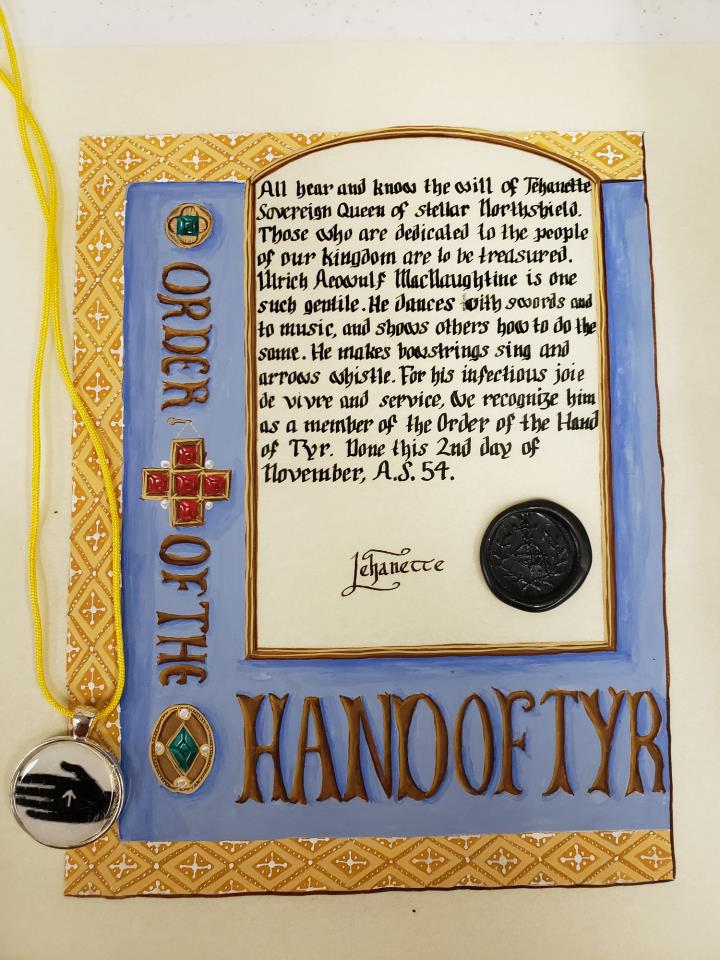 All hear and know the will of Tehanette
Sovereign Queen of stellar Northshield.
Those who are dedicated to the people
of our kingdom are to be treasured.
Ulrich Aeowulf MacNaughtine is one
such gentile. He dances with swords and
to music, and shows others how to do the
same. He makes bowstrings sing and
arrows whistle. For his infectious joie
de vivre and service, We recognize him
as a member of the Order of the Hand
of Tyr. Done this 2nd day of
November, A.S. 54.
Tehanette
ORDER
OF THE
HAND OF TYR